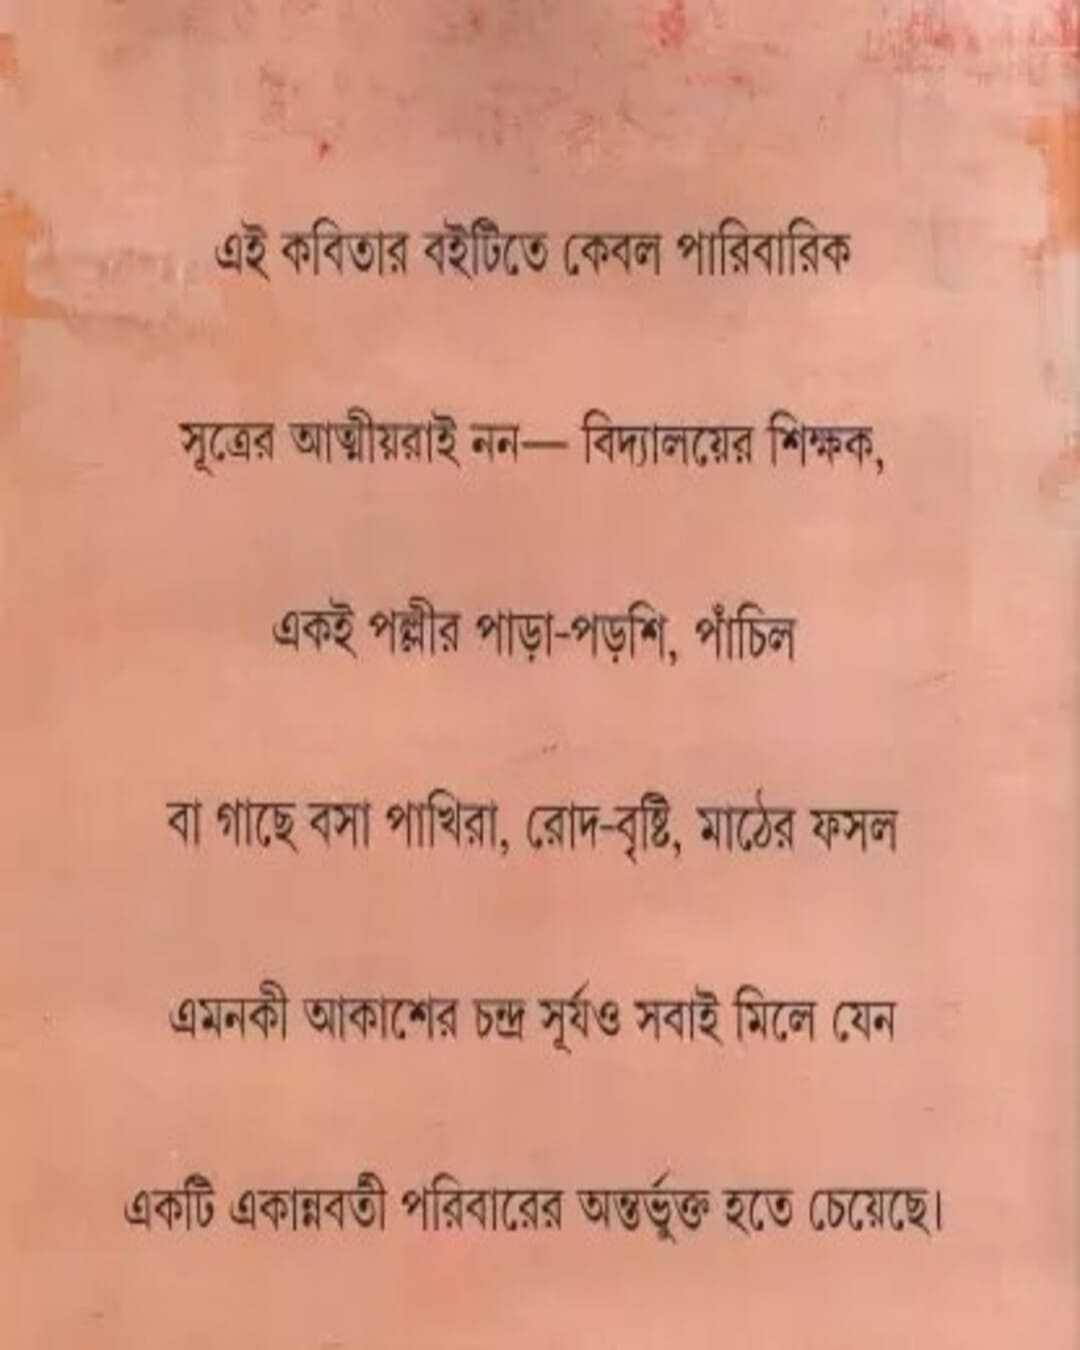 এই কবিতার বইটিতে কেবল পারিবারিক
সূত্রের আত্মীয়রাই নন— বিদ্যালয়ের শিক্ষক,
একই পল্লীর পাড়া-পড়শি, পাঁচিল
বা গাছে বসা পাখিরা, রোদ-বৃষ্টি, মাঠের ফসল
এমনকী আকাশের চন্দ্র সূর্যও সবাই মিলে যেন
একটি একান্নবর্তী পরিবারের অন্তর্ভুক্ত হতে চেয়েছে।